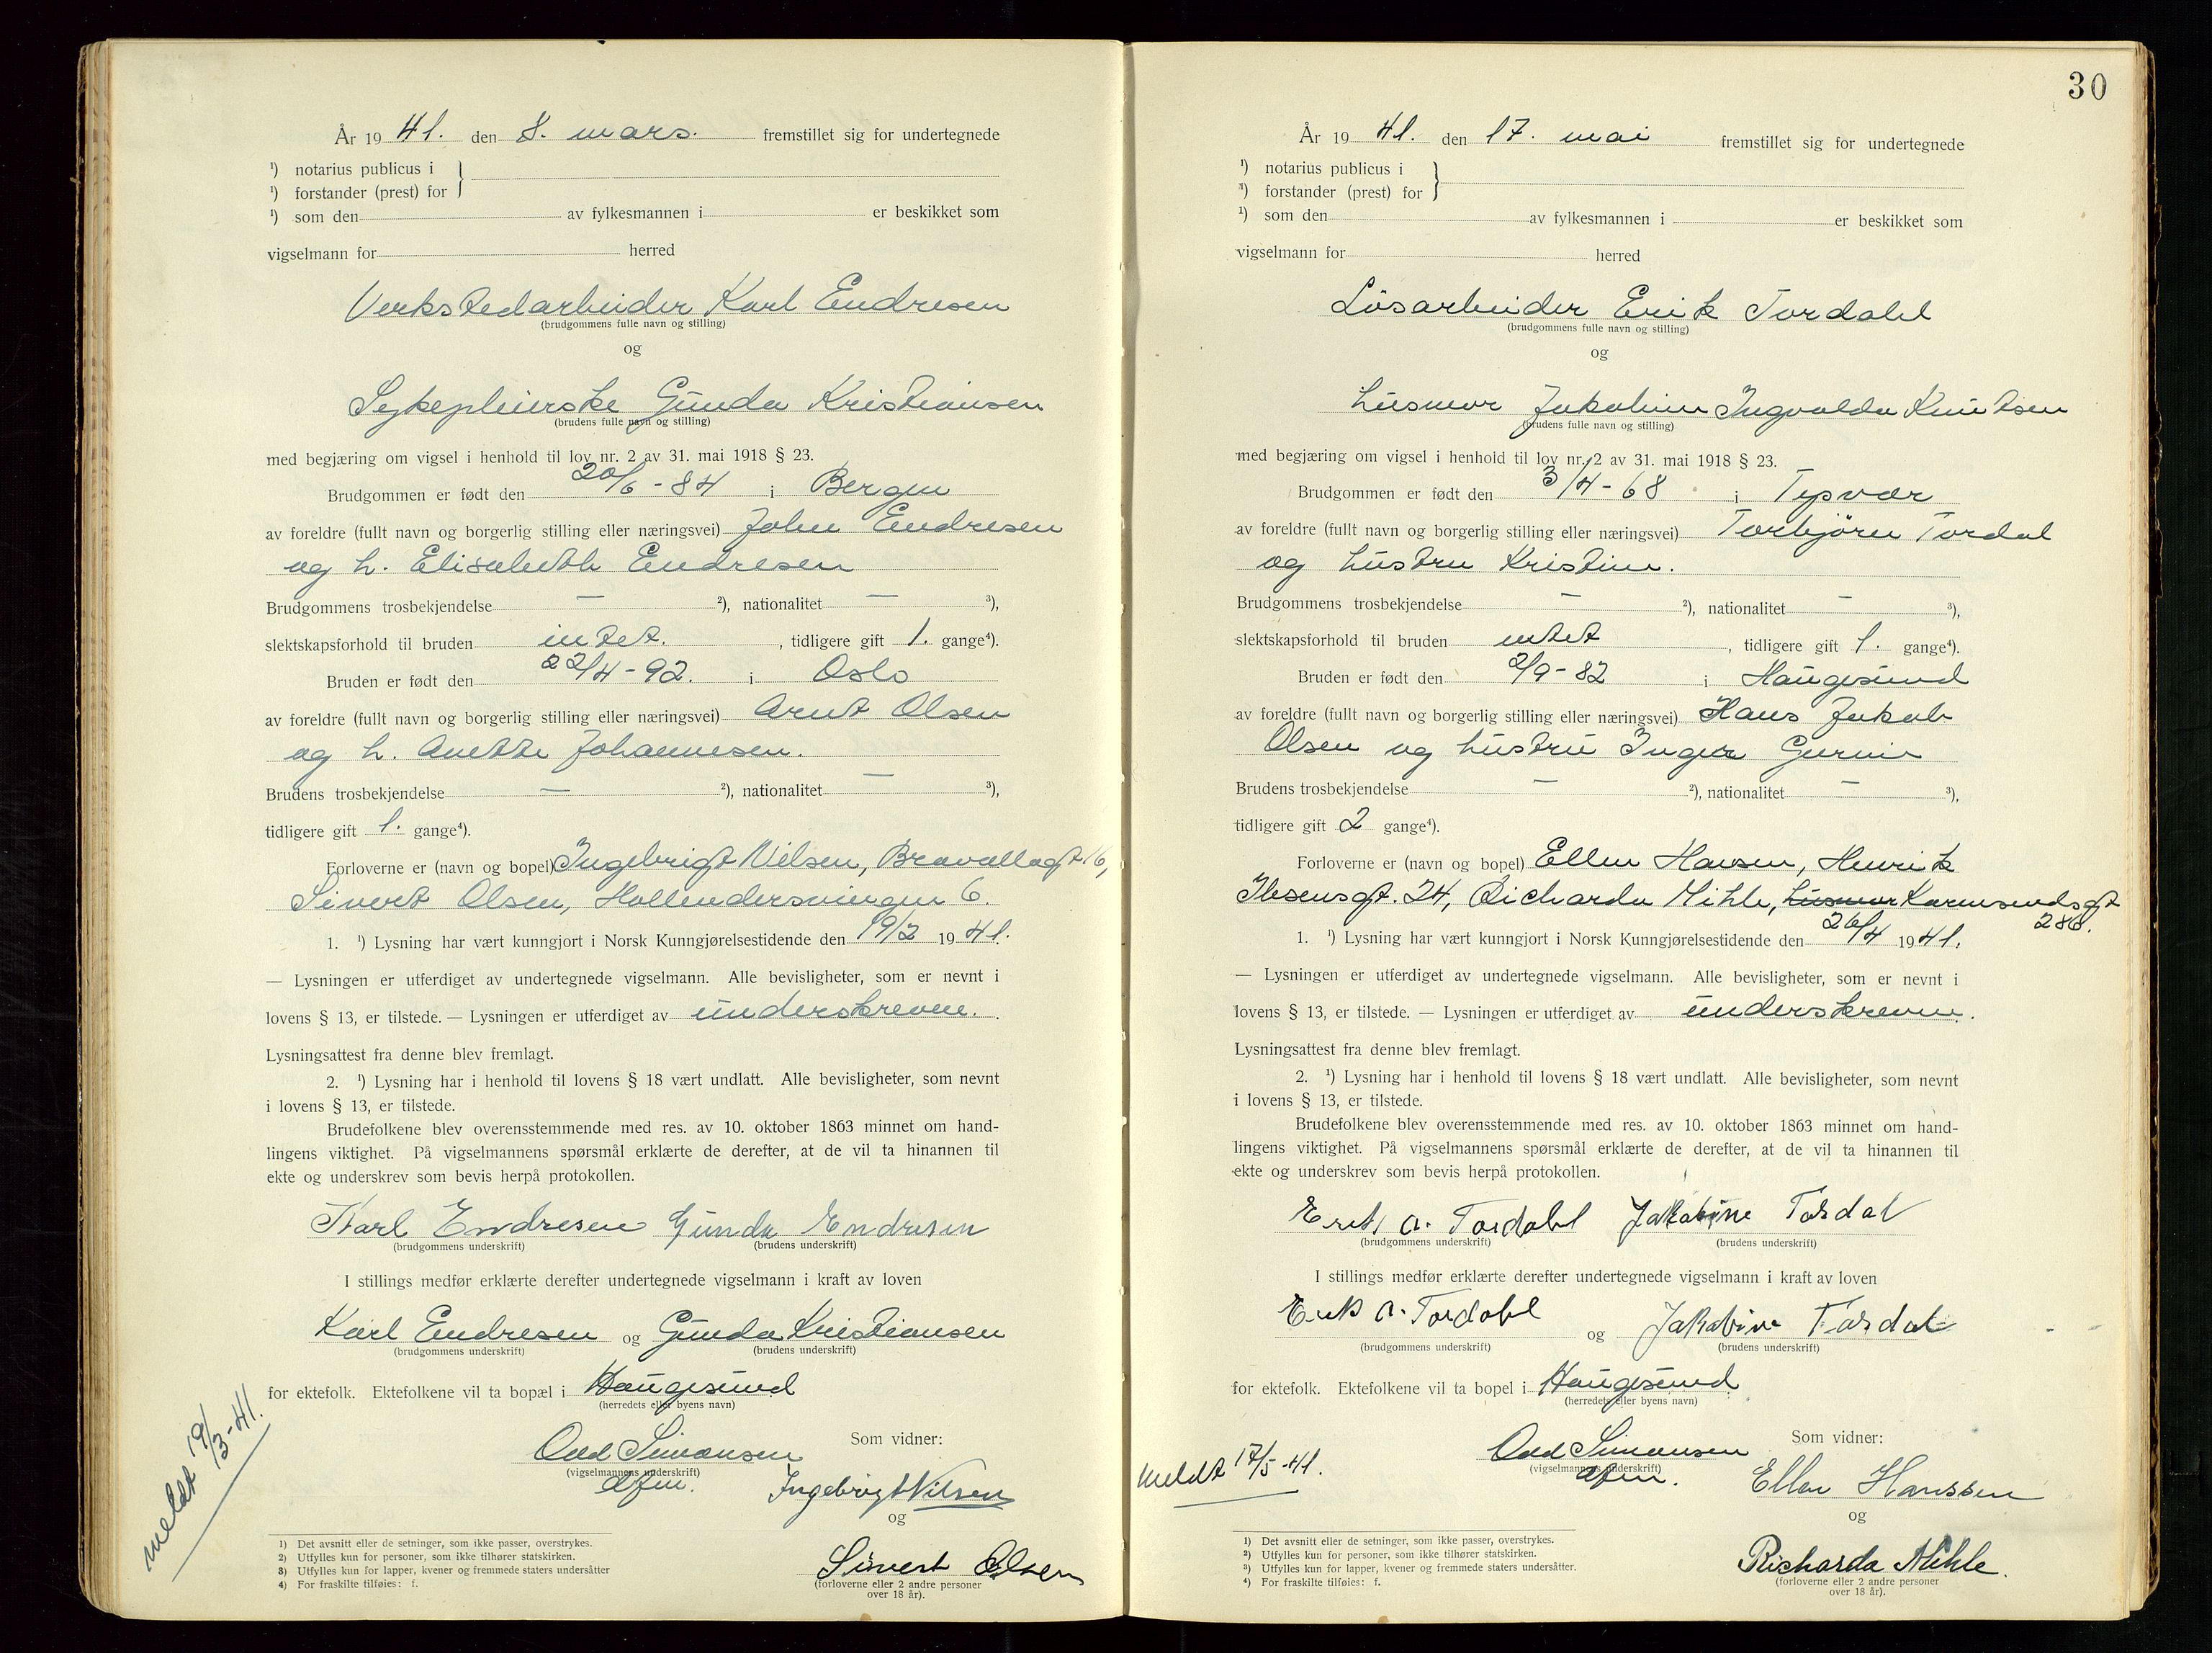 År 19 41. den 8. mars. fremstillet sig for undertegnede
¹) notarius publicus i
¹) forstander (prest) for
¹) som den av fylkesmannen i er beskikket som
vigselmann for herred
Verkstedarbeider Karl Endresen
(brudgommens fulle navn og stilling)
og
Sykepleierske Gunda Kristiansen
(brudens fulle navn og stilling)
med begjæring om vigsel i henhold til lov nr. 2 av 31. mai 1918 § 23.
Brudgommen er født den 20/6 - 84 i Bergen
av foreldre (fullt navn og borgerlig stilling eller næringsvei) John Endresen
og h. Elisabeth Endresen
Brudgommens trosbekjendelse — ²), nationalitet — ³),
slektskapsforhold til bruden intet. , tidligere gift 1. gange⁴).
Bruden er født den 22/4 - 92. i Oslo
av foreldre (fullt navn og borgerlig stilling eller næringsvei) Arnt Olsen
og h. Anette Johannesen.
Brudens trosbekjendelse — ²), nationalitet — ³),
tidligere gift 1. gange⁴).
Forloverne er (navn og bopel) Ingebrigt Nilsen, Bravallagt 16,
Sivert Olsen, Hollendersvingen 6.
1. ¹) Lysning har vært kunngjort i Norsk Kunngjørelsestidende den 19/2 19 41.
— Lysningen er utferdiget av undertegnede vigselmann. Alle bevisligheter, som er nevnt i
lovens § 13, er tilstede. — Lysningen er utferdiget av underskrevne.
Lysningsattest fra denne blev fremlagt.
2. ¹) Lysning har i henhold til lovens § 18 vært undlatt. Alle bevisligheter, som nevnt
i lovens § 13, er tilstede.
Brudefolkene blev overensstemmende med res. av 10. oktober 1863 minnet om hand-
lingens viktighet. På vigselmannens spørsmål erklærte de derefter, at de vil ta hinannen til
ekte og underskrev som bevis herpå protokollen.
Karl Endresen Gunda Endresen
(brudgommens underskrift) (brudens underskrift)
I stillings medfør erklærte derefter undertegnede vigselmann i kraft av loven
Karl Endresen og Gunda Kristiansen
(brudgommens underskrift) (brudens underskrift)
for ektefolk. Ektefolkene vil ta bopæl i Haugesund
(herredets eller byens navn)
meldt 19/3-41.
Odd Simonsen Som vidner:
(vigselmannens underskrift)
dfm. Ingebrigt Nilsen
og
Sivert Olsen
(forloverne eller 2 andre personer
over 18 år).
1) Det avsnitt eller de setninger, som ikke passer, overstrykes.
2) Utfylles kun for personer, som ikke tilhører statskirken.
3) Utfylles kun for lapper, kvener og fremmede staters undersåtter
4) For fraskilte tilføies: f.
30
År 19 41. den 17. mai fremstillet sig for undertegnede
¹) notarius publicus i
³) forstander (prest) for
¹) som den av fylkesmannen i er beskikket som
vigselmann for herred
Løsarbeider Erik Tordahl
(brudgommens fulle navn og stilling)
og
husmor Jakobine Ingvalda Knutsen
(brudens fulle navn og stilling)
med begjæring om vigsel i henhold til lov nr. 2 av 31. mai 1918 § 23.
Brudgommen er født den 3/4 - 68 i Tysvær
av foreldre (fullt navn og borgerlig stilling eller næringsvei) Torbjørn Tordal
og hustru Kristine.
Brudgommens trosbekjendelse — ²), nationalitet — ³),
slektskapsforhold til bruden intet , tidligere gift 1. gange⁴).
Bruden er født den 2/9 - 82 i Haugesund
av foreldre (fullt navn og borgerlig stilling eller næringsvei) Hans Jakob
Olsen og hustru Inger Gurine
Brudens trosbekjendelse — ²), nationalitet — ³),
tidligere gift 2 gange⁴).
Forloverne er (navn og bopel) Ellen Hansen, Henrik
Ibsensgt. 24, Richarda Mihle, husmor Karmsundsgt
286.
1. ¹) Lysning har vært kunngjort i Norsk Kunngjørelsestidende den 26/4 19 41.
— Lysningen er utferdiget av undertegnede vigselmann. Alle bevisligheter, som er nevnt i
lovens § 13, er tilstede. — Lysningen er utferdiget av underskrevne.
Lysningsattest fra denne blev fremlagt.
2. ¹) Lysning har i henhold til lovens § 18 vært undlatt. Alle bevisligheter, som nevnt
i lovens § 13, er tilstede.
Brudefolkene blev overensstemmende med res. av 10. oktober 1863 minnet om hand-
lingens viktighet. På vigselmannens spørsmål erklærte de derefter, at de vil ta hinannen til
ekte og underskrev som bevis herpå protokollen.
Erik A. Tordahl Jakobine Tordal
(brudgommens underskrift) (brudens underskrift)
I stillings medfør erklærte derefter undertegnede vigselmann i kraft av loven
Erik A. Tordahl og Jakobine Tordal
(brudgommens underskrift) (brudens underskrift)
for ektefolk. Ektefolkene vil ta bopel i Haugesund
(herredets eller byens navn)
meldt 17/5-41.
Odd Simonsen Som vidner:
(vigselmannens underskrift)
dfm. Ellen Hanssen
og
Richarda Mihle.
(forloverne eller 2 andre personer
over 18 år).
1) Det avsnitt eller de setninger, som ikke passer, overstrykes.
2) Utfylles kun for personer, som ikke tilhører statskirken.
3) Utfylles kun for lapper, kvener og fremmede staters undersåtter.
4) For fraskilte tilføies: f.